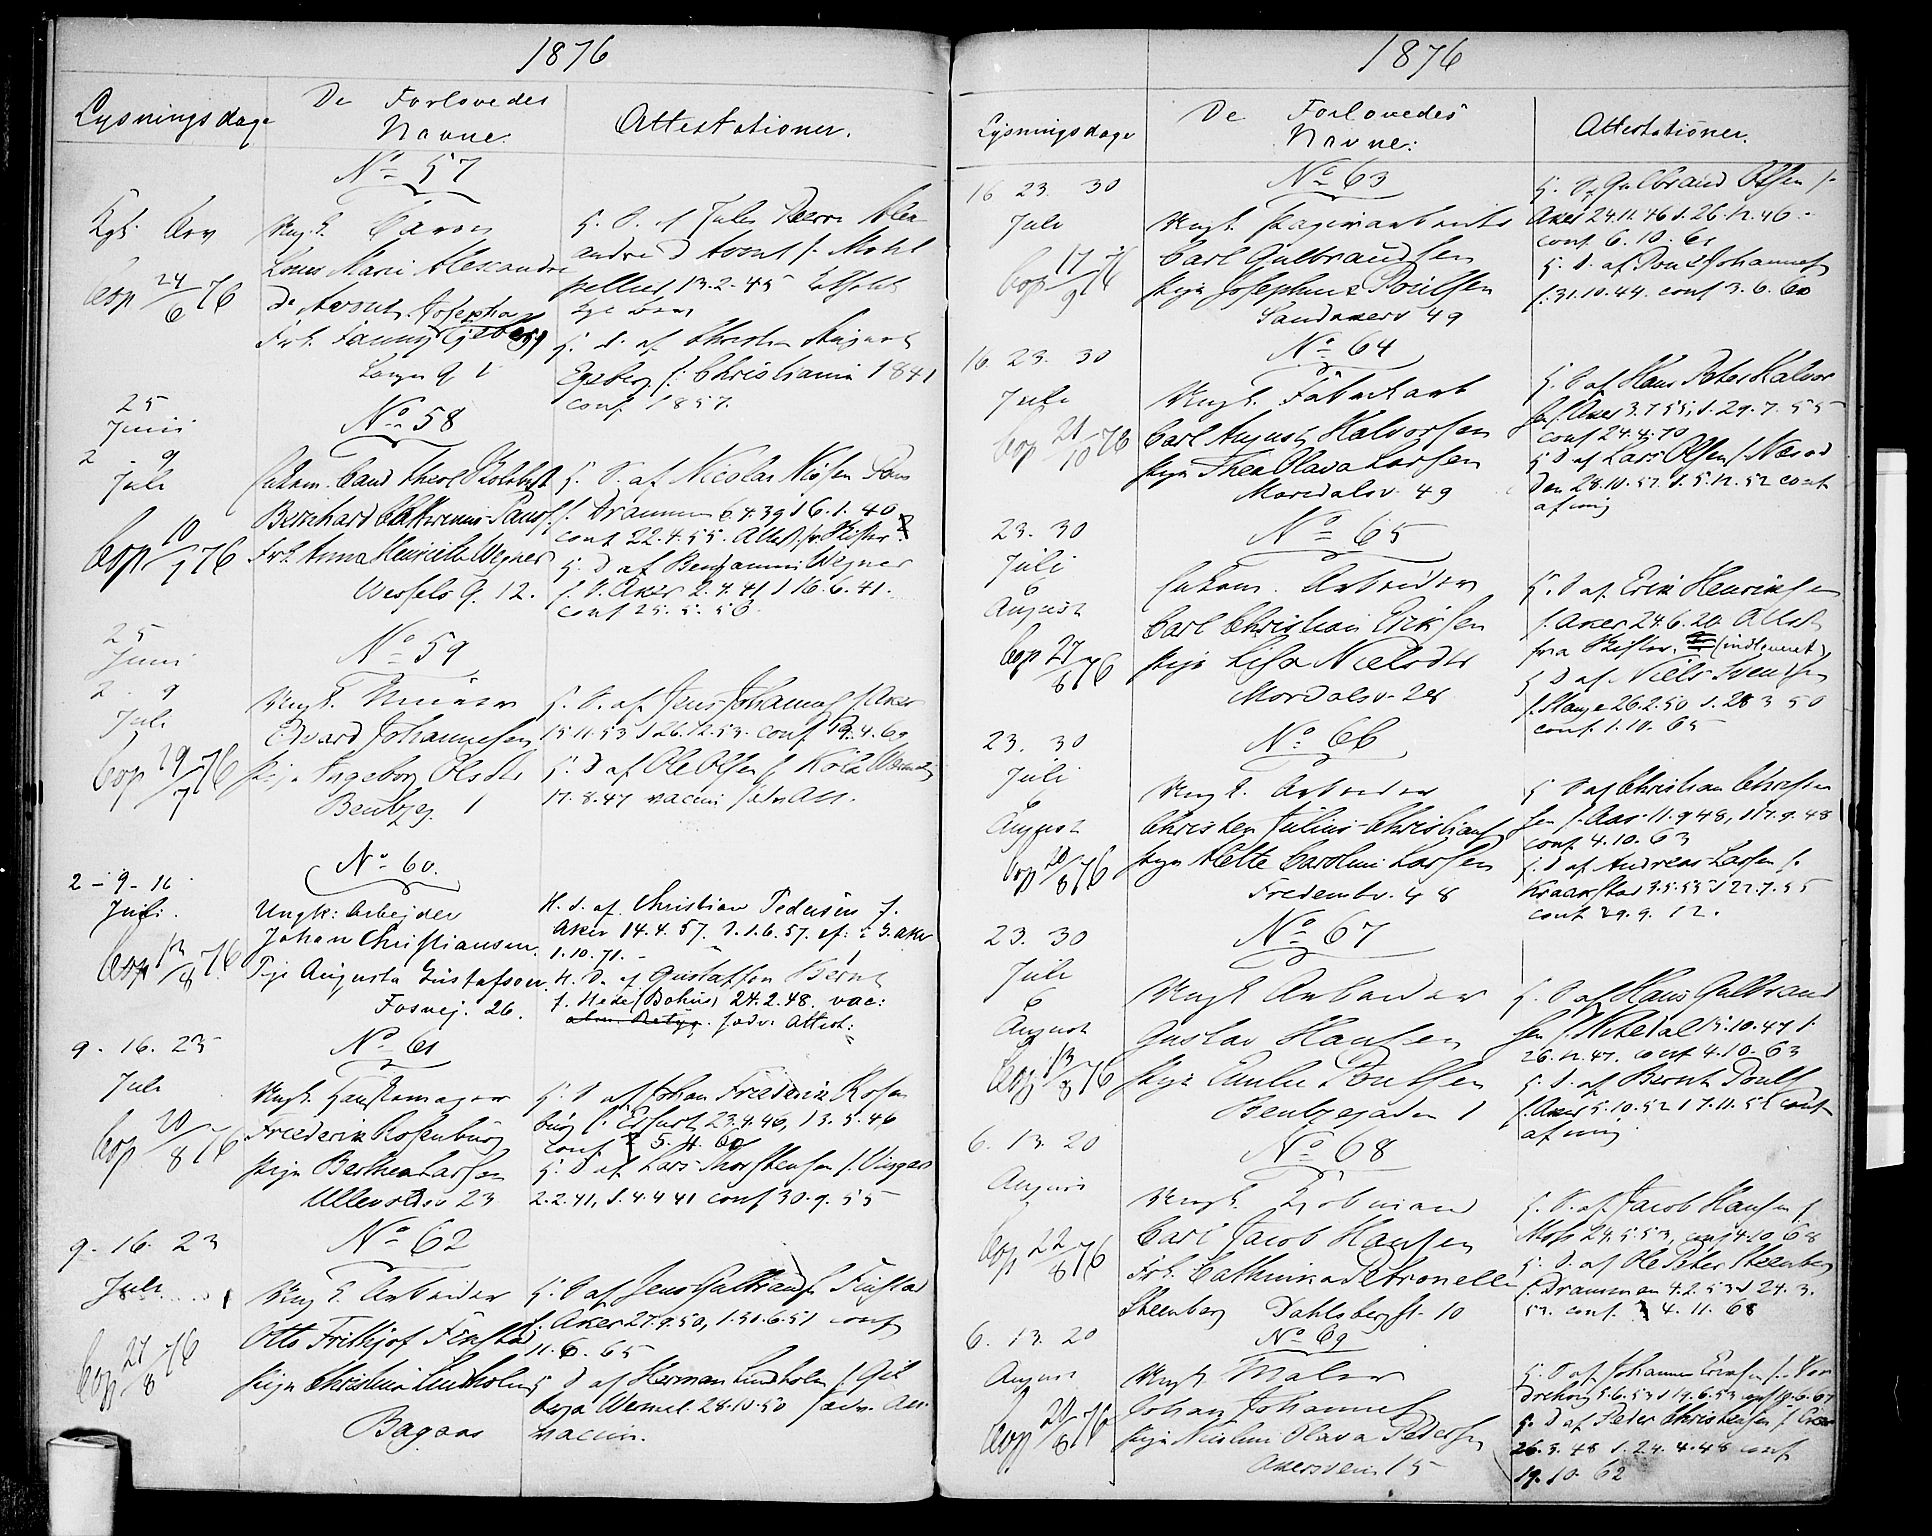 1876
Lysningsdage
De Forlovedes
Navne:
Attestationer.
No 57
Kgl. Brv
Cop 24/6 76
Ungk. Baron
Louis Marie Alexandre
Frk. Fanny Josepha Egeberg
G. S. af Jules Pierre Alex
andre
pellier 13.2.45
G. D. af Westye August
Egeberg f. Christiania 1841
conf 1857.
25
Juni
2 9
Juli
Cop 10/7 76
No 58
Bernhard Cathrinus Paus
Frk. Anna Henriette Wegner
Wessels G. 12.
G. S. af Nicolai Nissen Paus
f. Drammen 6.4.39 d 6.1.40
conf 22.4.55. Attest fr. Kister
G. D af Benjamin Wegner
f. V. Aker 2.4.41 d 16.6.41.
conf 25.5.56.
25
Juni
2. 9
Juli
Cop 29/7 76
No 59
Ungk. Murer
Edvard Johannesen
Pige Ingeborg Olsdtr
Bentzeg. 1
G. S. af Jens Johannes f Aker
15.11.53 d 26.12.53. conf 4.69
G. D af Ole Olsen f.
17.8.47 vaccin. sædv. Att.
2-9-16
Juli.
Cop 13/8 76
No 60.
Ungk: Arbejder
Johan Christiansen.
Pige Augusta Gustafson.
Fosvej. 26.
H. S. af Christian Pedersen f.
Aker 14.4.57. d. 1.6.57. cf: i Ø. Aker
1.10.71. -
H. D. af Gustafson Bernt
f. Hede (Bohus) 24.2.48. vac:
sædv. Attest:
9. 16. 23
Juli
Cop 20/8 76
No 61
Ungk. Handskemager
Friederik Rosenburg
Pige Berthea Larsen
Ullevoldsv 23
G. S af Johan Friederik Rosen
burg f. Erfurt 23.4.46, 13.5.46
conf 5.4.60
G. D af Lars Thorstensen f. Vinger
2.2.41, d. 4.4 41 conf 30.9.55
9. 16. 23
Juli
Cop 27/8 76
No 62
Ungk. Arbeider
Otto Frithjof Finstad
Pige Christina Lindholm
Bagaas
G. S af Jens Gulbrands Finstad
f. Aker 27.9.50, d. 30.6.51 conf
11.6.65
G D af Herman Lindholm f. Gil
berga Werml. 28.10.50 sædv. Att.
vaccin.
1876
Lysningsdage
De Forlovedes
Navne:
Attestationer.
16 23. 30
Juli
Cop 17/9 76
No 63
Ungk. Papirarbeider
Carl Gulbrandsen
Pige Josephine Poulsen
Sandakerv 49
G. S af Gulbrand Olsen f.
Aker 24.11.46 d. 26.12.46 -
conf 6.10.61
G. D. af Poul Johannes
f. 31.10.44. conf 3.6.60
16 23. 30
Juli
Cop 21/10 76
No 64
Ungk. Fabrikarb
Carl August Halvorsen
Pige Thea Olava Larsen
Maridalsv. 49
G. S af Hans Peter Halvor
sen f. Aker 3.7 55, d. 29.7.55
conf 24.4.70
G D af Lars Olsen f. Næsod
den 28.10.52. d. 5.12.52 conf
af mig
23. 30
Juli
6
August
Cop 27/8 76
No 65
Enkem. Arbeider
Carl Christian Eriksen
Pige Lisa Nielsdtr
Mardalsv. 28
G. S af Erik Henriksen
f. Aker 24.6.20. Attest
fra Skifter. (indleveret)
G D af Niels Svendsen
f. Stange 26.2.50 d. 28 3 50
conf. 1.10.65
23. 30
Juli
6
August
Cop 20/8 76
No 66
Ungk. Arbeider
Christen Julius Christians
Pige Mette Caroline Larsen
Fredensbv. 48
G S af Christian Christen
sen f. Aas 11.9 48, d 17.9.48
conf 4.10.63
G. D af Andreas Larsen f.
Kraakstad 3.5.55 d 22.7.55
conf 29.9.12.
23. 30
Juli
6
August
Cop 13/8 76
No 67
Ungk Arbeider
Gustav Hansen
Pige Emilie Poulsen
Bentzegaden 1
G. S af Hans Gulbrand
sen f. Nitedal 15.10.47 d.
26.12.47. conf 4.10.63
G. D. af Bernt Pouls
f. Aker 5.10.52 d 7.11.52 conf
af mig
6. 13. 20
August
Cop 22/8 76
No 68
Ungk. Kjøbmand
Carl Jacob Hansen
Frk. Cathrina Petronelle
Steenberg Dahlsbergst. 10
G. S. af Jacob Hansen f.
Moss 24.5.53, conf 4.10 68
G. D. af Ole Peter Steenberg
f. Drammen 4.2.53 d 24.3.
53. conf. 4.11.68
6. 13. 20
August
Cop 20/8 76
No 69
Ungk Maler
Johan Johannes
Pige Nicoline Olava Pedersen
Akersveien 15
G. S af Johannes Ericksen f. For
5.6.53 d 19.6.53 conf 19.6.67
G. D af Peder Christensen f.
26.3.48 d. 24.4.48 conf
19.10.62